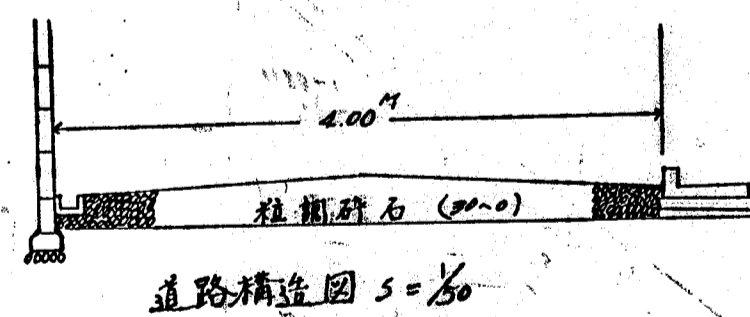 4.00M
粒調砕石 (30~0)
道路構造図 S=1/50